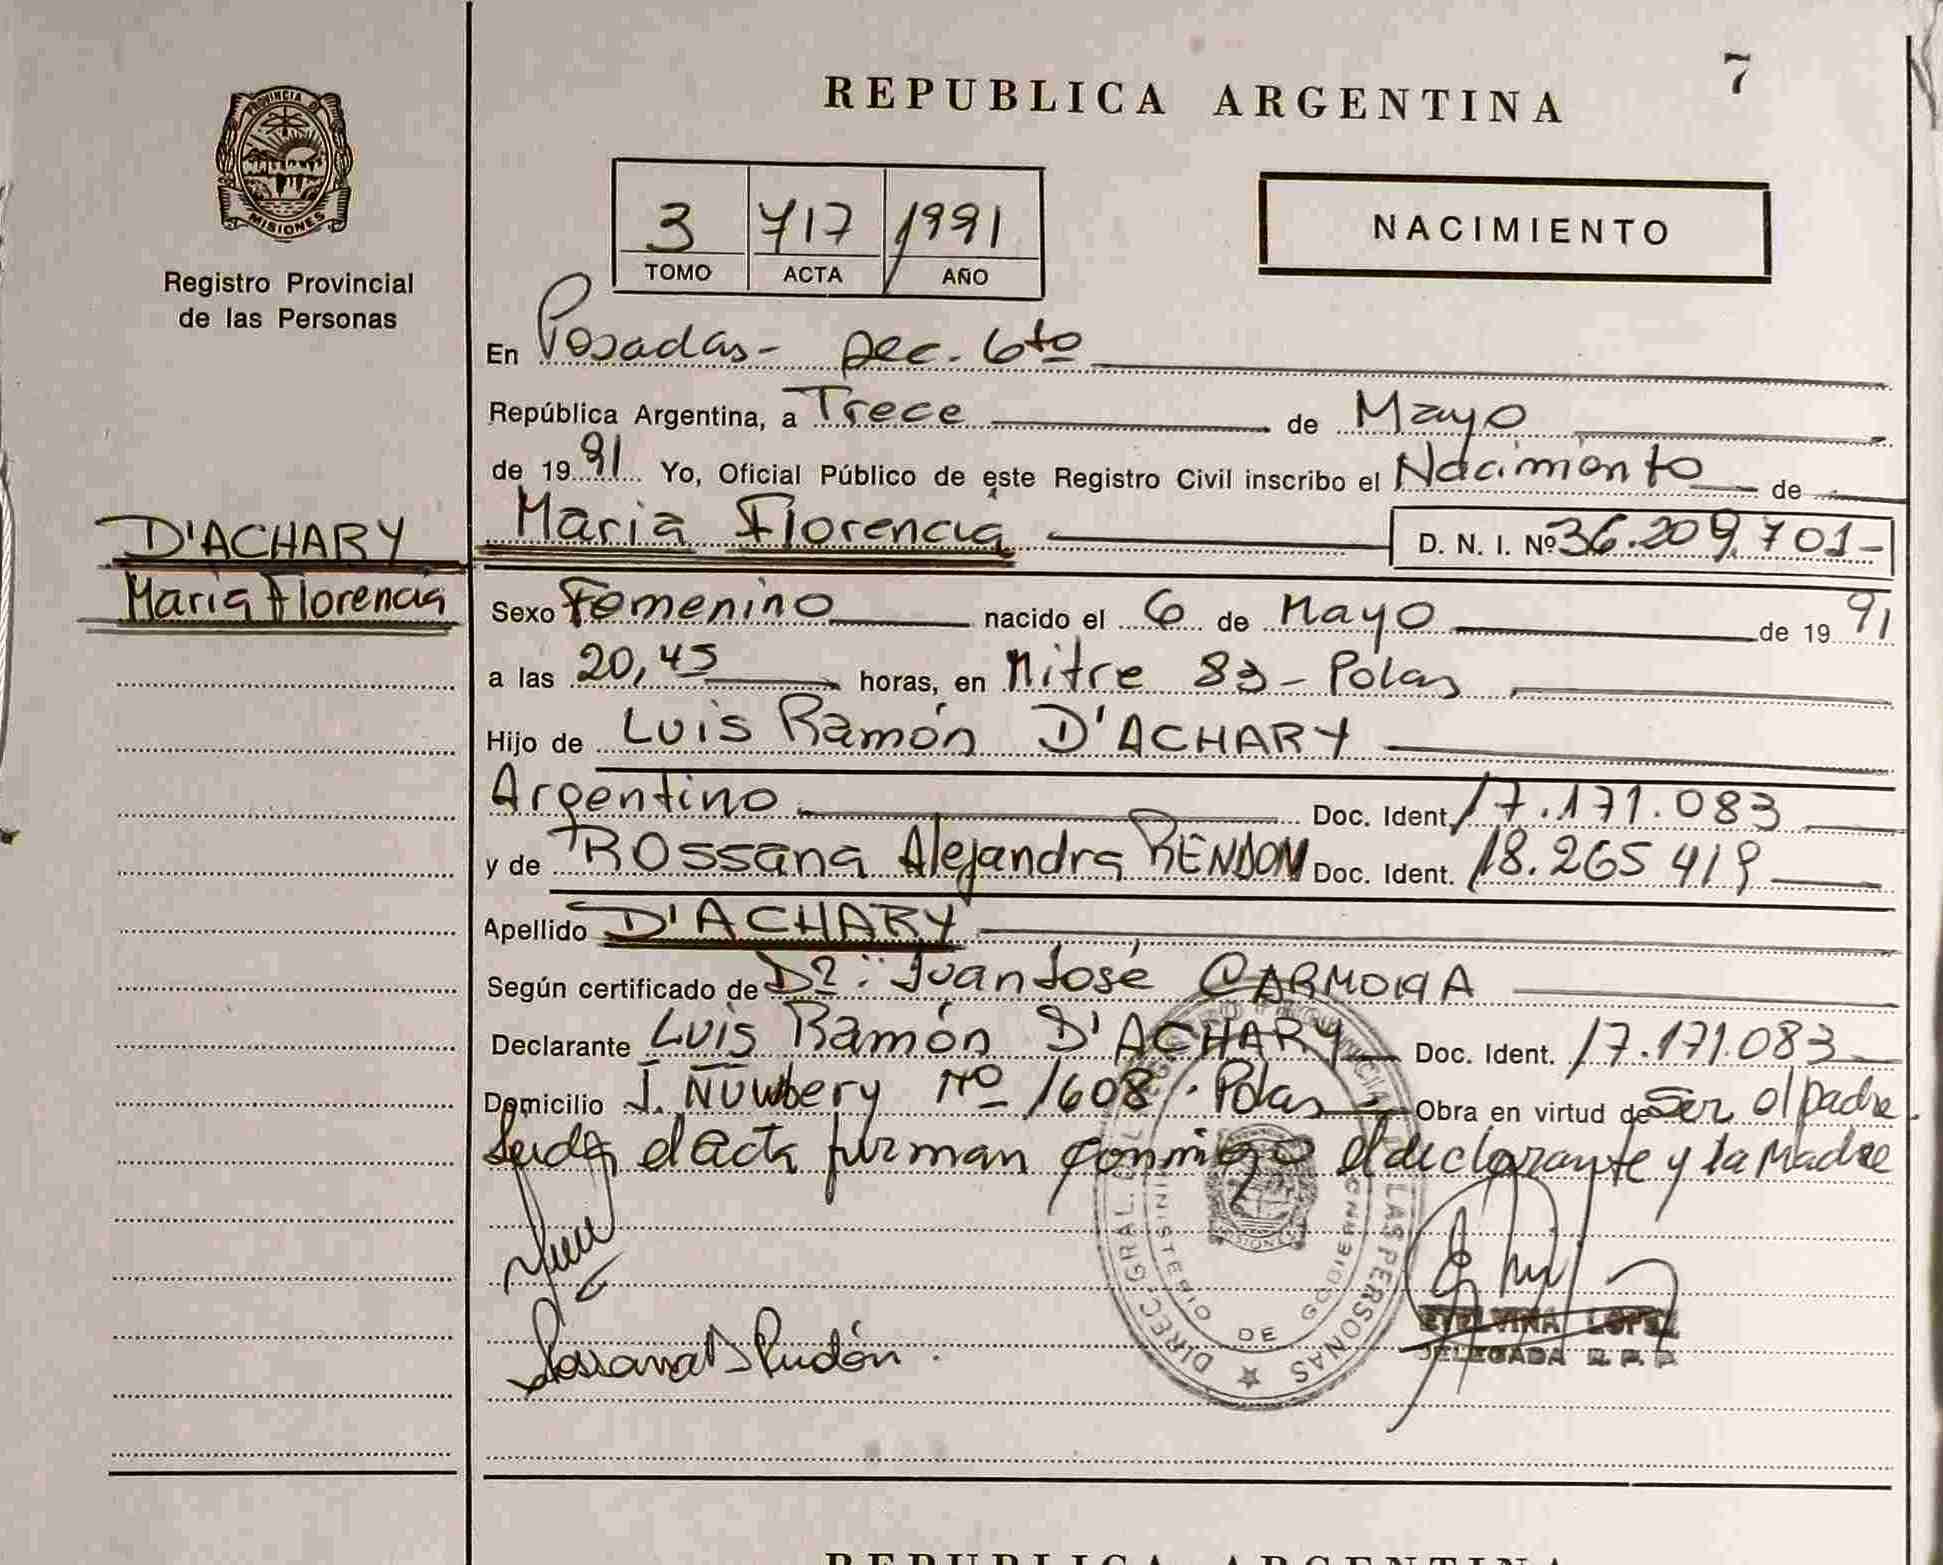 7
REPUBLICA ARGENTINA
PROVINCIA D
MISIONES
Registro Provincial
de las Personas
3 717 1991
TOMO ACTA AÑO
NACIMIENTO
En Posadas- Sec. 6to
República Argentina, a Trece de Mayo
de 1991 Yo, Oficial Público de este Registro Civil inscribo el Nacimiento de
D'ACHARY
Maria Florencia
Maria Florencia D. N. I. Nº 36.209.701-
Sexo Femenino nacido el 6 de Mayo de 1991
a las 20,45 horas, en Mitre 83 - Pdas
Hijo de Luis Ramón D'ACHARY
Argentino Doc. Ident. 17.171.083
y de Rossana Alejandra RENDON Doc. Ident. 18.265 419
Apellido D'ACHARY
Según certificado de Dr: Juan José
Declarante Luis Ramón D'ACHARY Doc. Ident. 17.171.083
Domicilio J. Nuwbery Nº 1608 - Pdas Obra en virtud de Ser el padre.
Leida el acta firman conmigo el declarante y la Madre
DIREC. GRAL. DEL REGISTRO PROVINCIAL DE LAS PERSONAS
MINISTERIO DE GOBIERNO
MISIONES
Rossana A Rendón.
ETELVINA LOPEZ
DELEGADA R. P. P.
REPUBLICA ARGENTINA